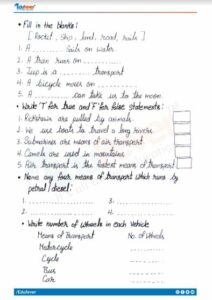 Edufever
• Fill in the blanks:
[ Rocket, Ship, land, road, rails ]
1. A ........ Sails on water.
2. A train runs on ........
3. Jeep is a ........ transport
4. A bicycle moves on ........
5. A ........ can take us to the moon.
• Write 'T' for true and 'F' for false statements:
1. Rickshaws are pulled by animals
2. We use boats to travel a long river
3. Submarines are means of air transport.
4. Camels are used in mountains
5. Air transport is the fastest means of transport
• Name any four means of transport which runs by
petrol / diesel:
1. ........ 2. ........
3. ........ 4. ........
• Write number of wheels in each vehicle
Means of Transport No. of wheels
Motorcycle
Cycle
Bus
Car
/Edufever